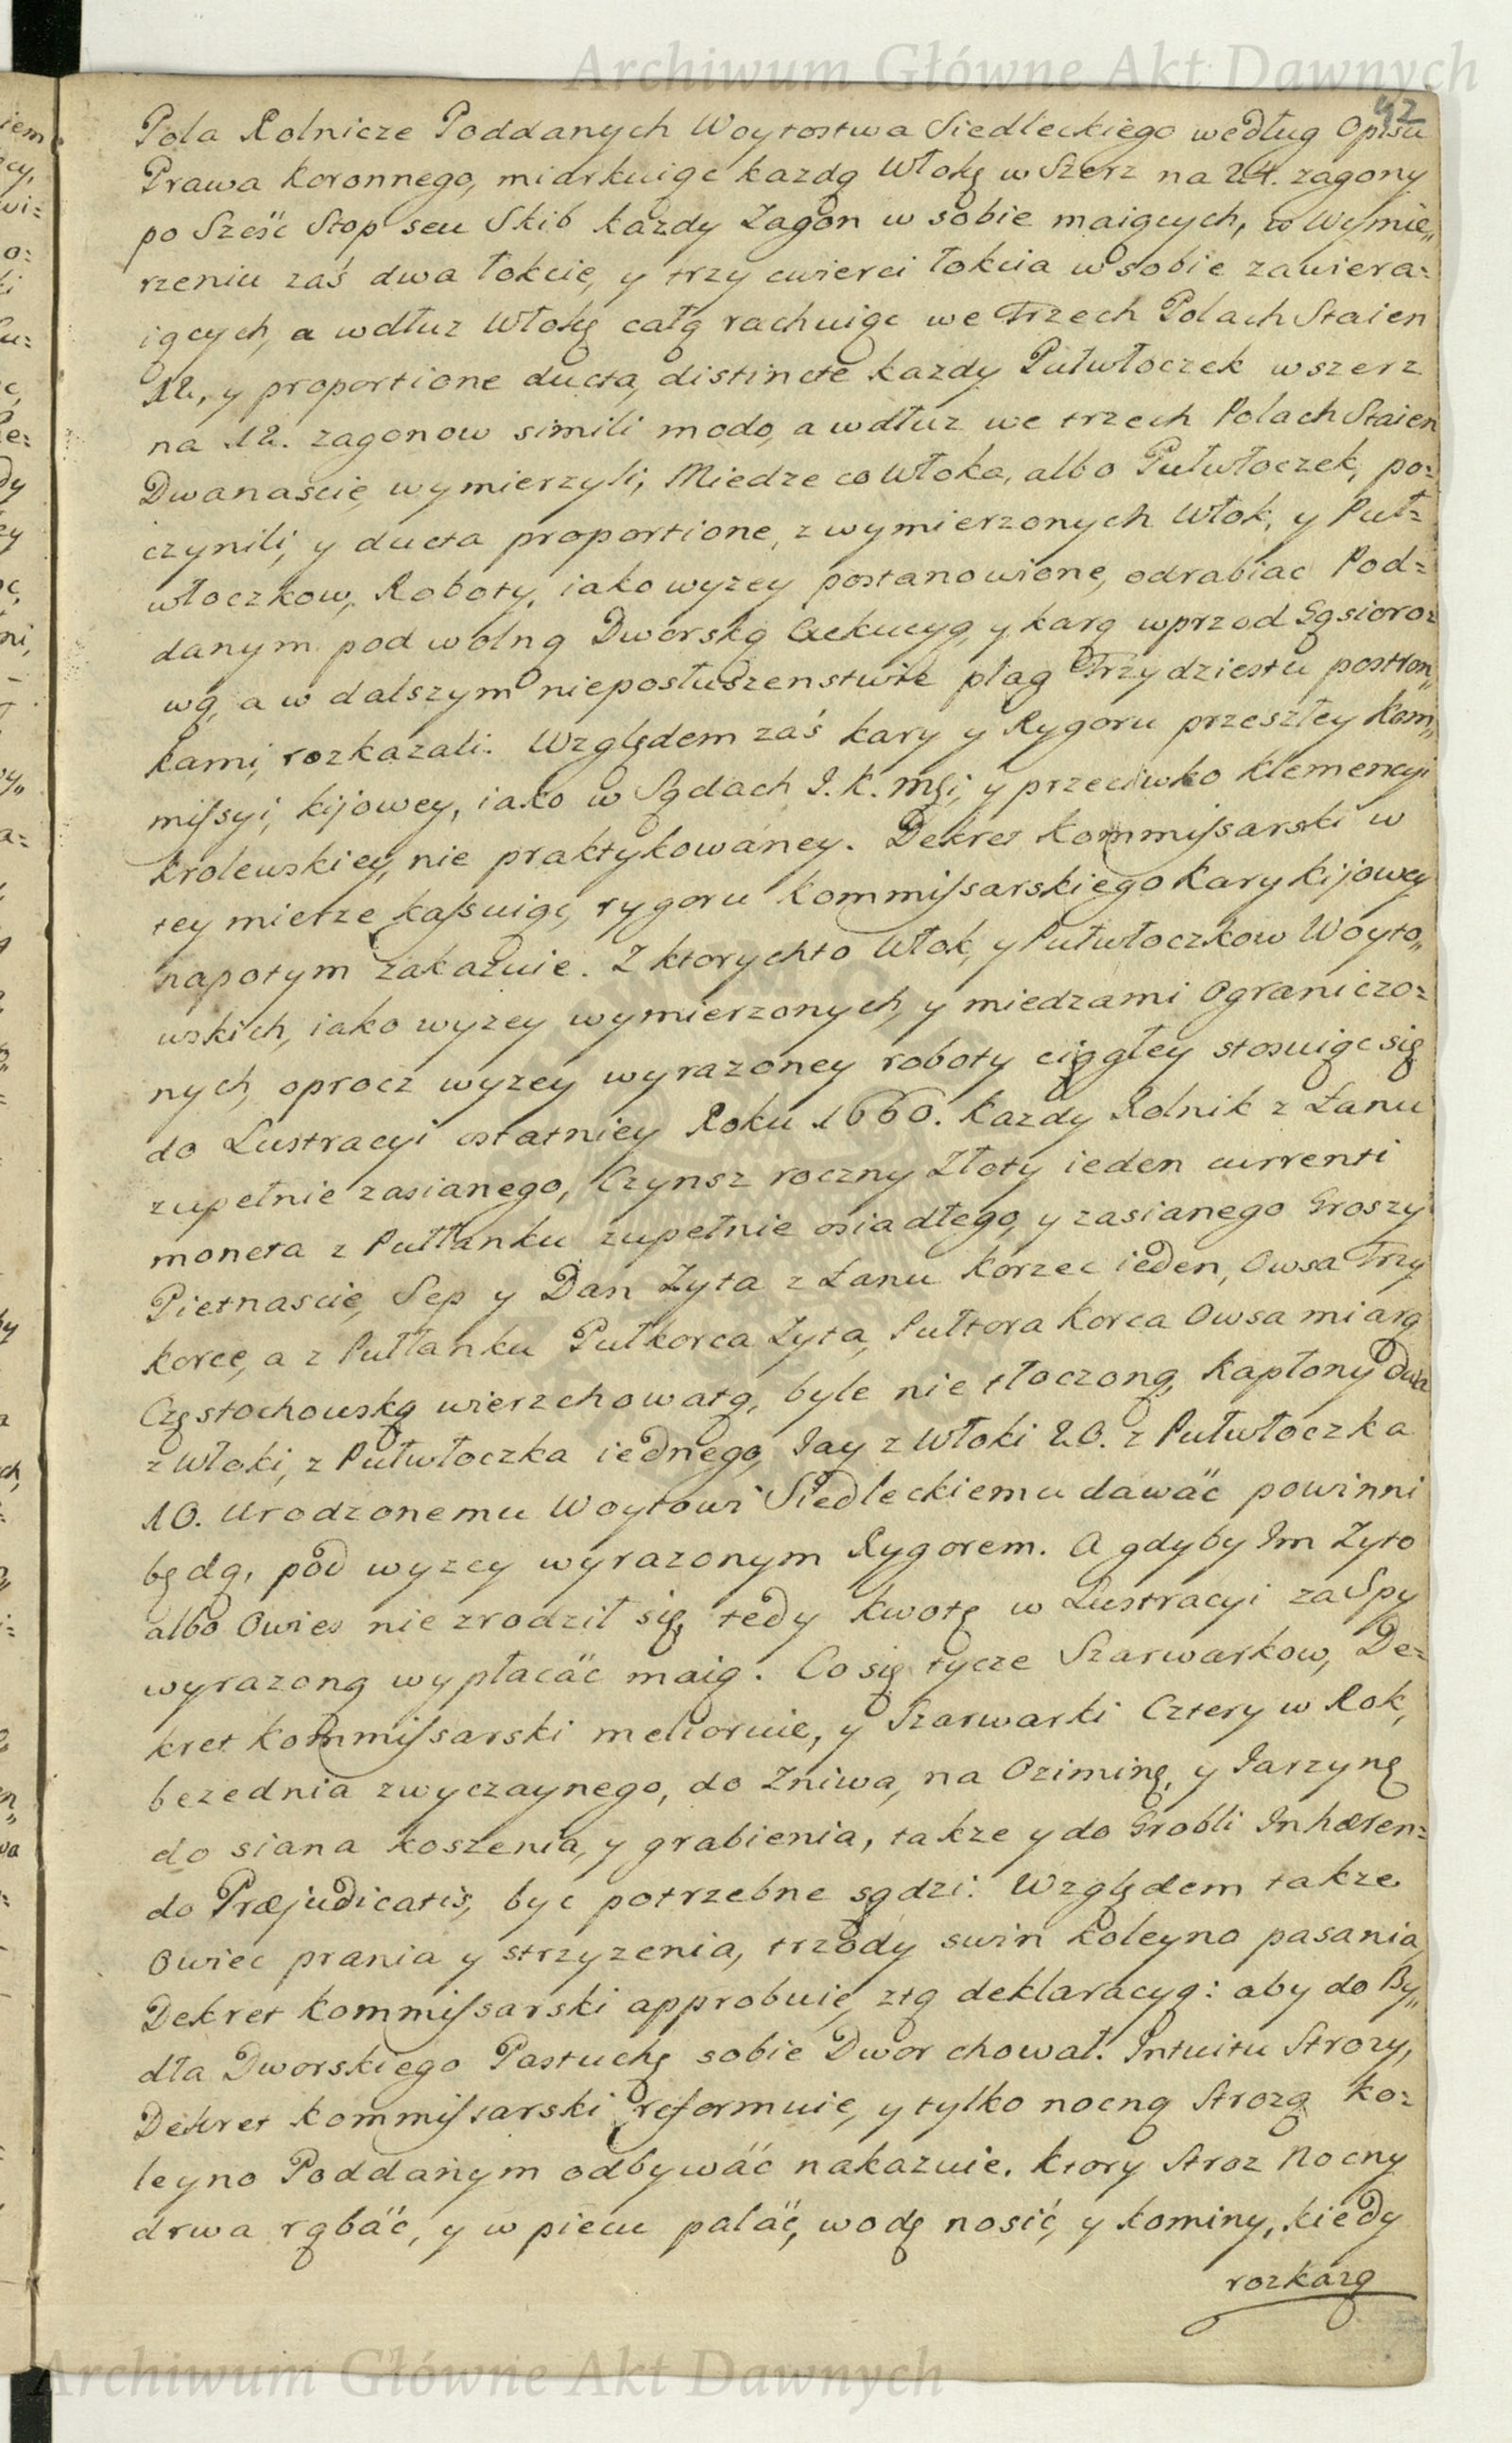 Archiwum Główne Akt Dawnych
42
Pola Rolnicze Poddanych Woytostwa Siedleckiego według Opisu
Prawa Koronnego, miarkuiąc kazdą Włokę w Szerz na 24. zagony
po Sześć Stop seu Skib kazdy Zagon w sobie maiących, w Wymie„
rzeniu zaś dwa łokcie, y trzy cwierci łokcia w sobie zawiera=
iących, a wdłuz Włokę całą rachuiąc we Trzech Polach Staien
12, y proportione ducta, distincte kazdy Pułwłoczek wszerz
na 12. zagonow simili modo, a wdłuz we trzech Polach Staien
Dwanascie, wymierzyli, Miedze co Włoka, albo Pułwłoczek, po=
czynili, y ducta proportione, z wymierzonych Włok, y Puł=
włoczkow, Roboty, iako wyzey postanowione, odrabiac Pod=
danym pod wolną Dworską Exekucyą, y karą wprzod Gąsioro=
wą, a w dalszym nieposłuszenstwie plag Trzydziestu postron„
kami, rozkazali. Względem zaś kary y Rygoru przeszłey Kom„
mifsyi, kijowey, iako w Sądach J. K. Mśi, y przeciwko klemencyi
krolewskiey, nie praktykowaney. Dekret Kommifsarski w
tey mierze kafsuiąc, rygoru Kommifsarskiego Kary kijowey
napotym zakazuie. Z ktorychto Włok, y Pułwłoczkow Woyto„
wskich, iako wyzey wymierzonych, y miedzami Ograniczo=
nych, oprocz wyzey wyrazoney roboty ciągłey stosuiąc się
do Lustracyi ostatniey Roku 1660. kazdy Rolnik z Łanu
zupełnie zasianego, Czynsz roczny Złoty ieden currenti
moneta z Pułłanku zupełnie osiadłego, y zasianego Groszy
Pietnascie, Sep y Dan Zyta z Łanu korzec ieden, Owsa Trzy
korce, a z Pułłanku Pułkorca Zyta, Pułtora Korca Owsa miarą
Częstochowską wierzchowatą, byle nie tłoczoną, Kapłony dwa
z Włoki, z Pułwłoczka iednego, Jay z Włoki 20. z Pułwłoczka
10. Urodzonemu Woytowi Siedleckiemu dawać powinni
będą, pod wyzey wyrazonym Rygorem. A gdyby Im Zyto
albo Owies nie zrodził się, tedy kwotę w Lustracyi za Spy
wyrazoną wypłacać maią. Co się tycze Szarwarkow, De=
kret Kommifsarski melioruie, y Szarwarki Cztery w Rok,
bezednia zwyczaynego, do Zniwa, na Oziminę, y Jarzynę
do siana koszenia, y grabienia, takze y do Grobli Inhæren=
do Præjudicatis, byc potrzebne sądzi. Względem takze
Owiec prania y strzyzenia, trzody swin koleyno pasania,
Dekret Kommifsarski approbuie, ztą deklaracyą: aby do By„
dła Dworskiego Pastuchę sobie Dwor chował. Intuitu Strozy,
Dekret Kommifsarski reformuie, y tylko nocną Strozą ko=
leyno Poddanym odbywać nakazuie. ktory Stroz Nocny
drwa rąbać, y w piecu palać, wodę nosić, y kominy, kiedy
rozkazą
Archiwum Główne Akt Dawnych